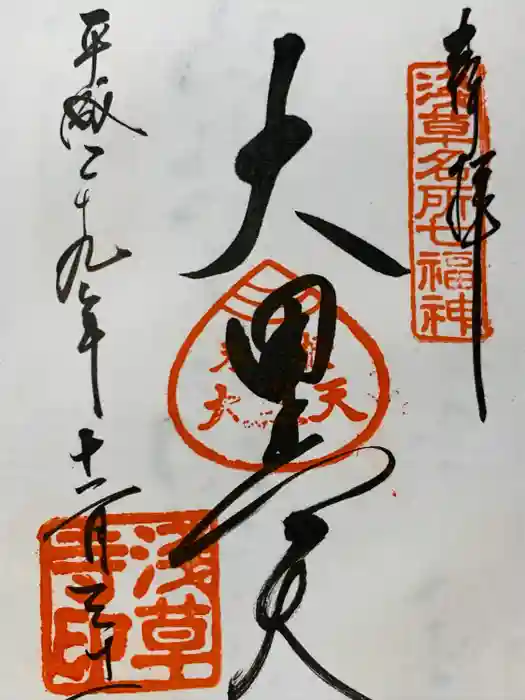 奉拝
浅草名所七福神
大黒天
大黒天
平成二十九年十一月三十
浅草
寺印